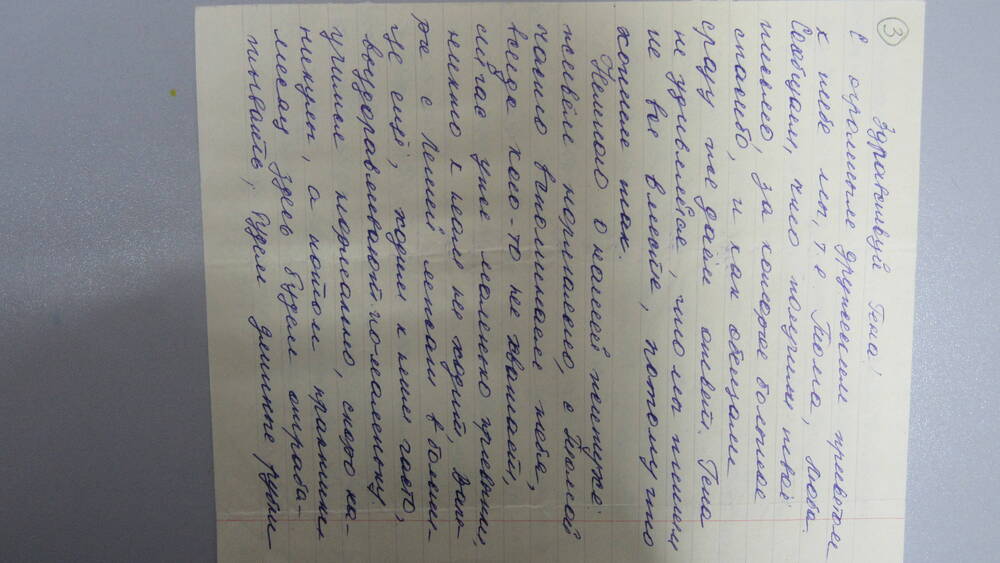 3
Здравствуй Гена!
С огромным дружеским приветом
к тебе мы, т.е. Тома, Люба.
Сообщаем, что получили твоё
письмо, за которое большое
спасибо, и как обещали
сразу же даём ответ. Гена
не удивляйся, что мы пишем
не все вместе, потому что
хотим так.
Немного о нашей житухе:
живём нормально, с Томой
часто вспоминаем тебя,
всегда кого-то не хватает,
сейчас уже маленько привыкли,
никто к нам не ходит,
с Лёшей лежат в больни-
це ещё, ходим к ним часто,
выздоравливают по-маленьку.
учимся нормально, скоро ка-
никулы, а потом практика
месяц здесь будем отраба-
тывать, будем длинные рубли